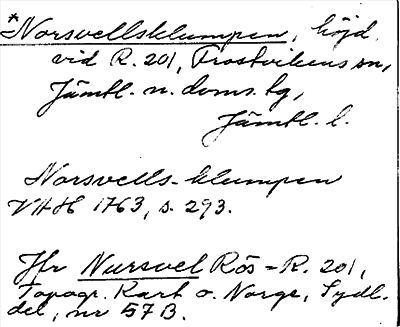 *Norsvellsklumpen, höjd
vid R. 201, Frostvikens sn,
Jämtl. n. doms. tg,
Jämtl. l.
Norsvells-klumpen
VHH 1763, s. 293.
Jfr Nursvel Rös = R. 201,
Topogr. Kart o. Norge, Sydl.
del, nr 57 B.